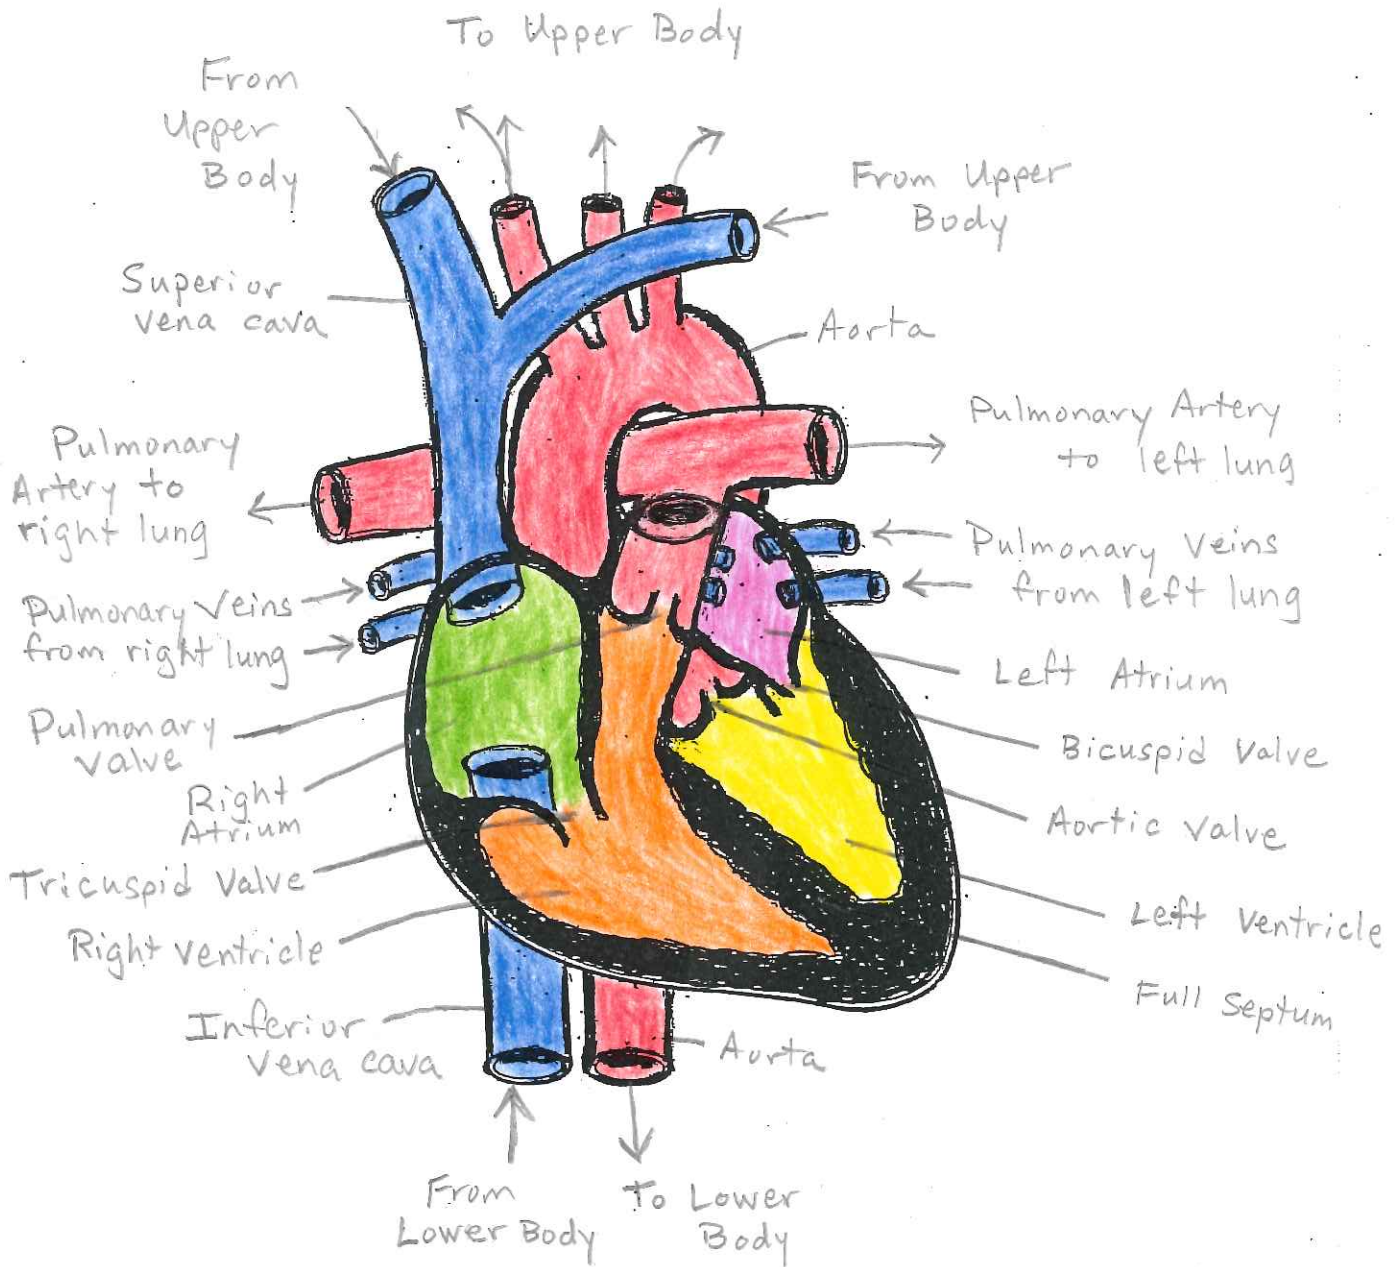 To Upper Body
From
Upper
Body
From Upper
Body
Superior
vena cava
Aorta
Pulmonary Artery
to left lung
Pulmonary
Artery to
right lung
Pulmonary Veins
from left lung
Pulmonary Veins
from right lung
Left Atrium
Pulmonary
valve
Bicuspid Valve
Right
Atrium
Aortic Valve
Tricuspid Valve
Left Ventricle
Right Ventricle
Full Septum
Inferior
vena cava
Aorta
From
Lower Body
To Lower
Body